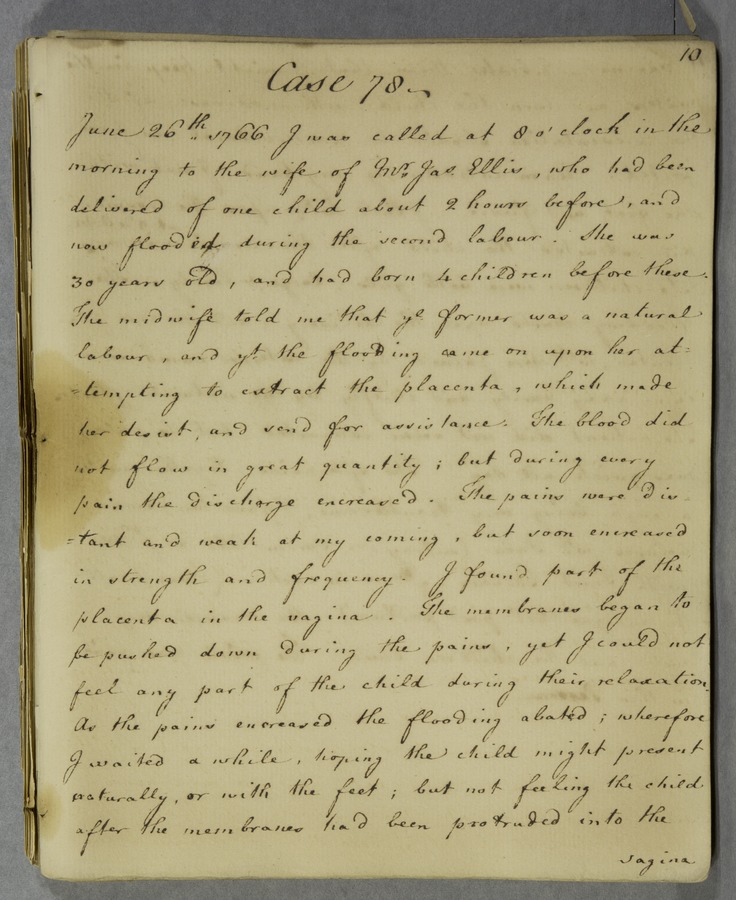 10
Case 78
June 26th 1766 I was called at 8 o'clock in the
morning to the wife of Mr. Jas. Ellis, who had been
delivered of one child about 2 hours before, and
now flooded during the second labour. She was
30 years old, and had born 4 children before these.
The midwife told me that ye former was a natural
labour, and yt the flooding came on upon her at=
=tempting to extract the placenta, which made
her desist, and send for assistance. The blood did
not flow in great quantity; but during every
pain the discharge encreased. The pains were dis
=tant and weak at my coming, but soon encreased
in strength and frequency. I found part of the
placenta in the vagina. The membranes began to
be pushed down during the pains, yet I could not
feel any part of the child during their relaxation.
As the pains encreased the flooding abated; wherefore
I waited a while, hoping the child might present
naturally, or with the feet; but not feeling the child
after the membranes had been protruded into the
vagina